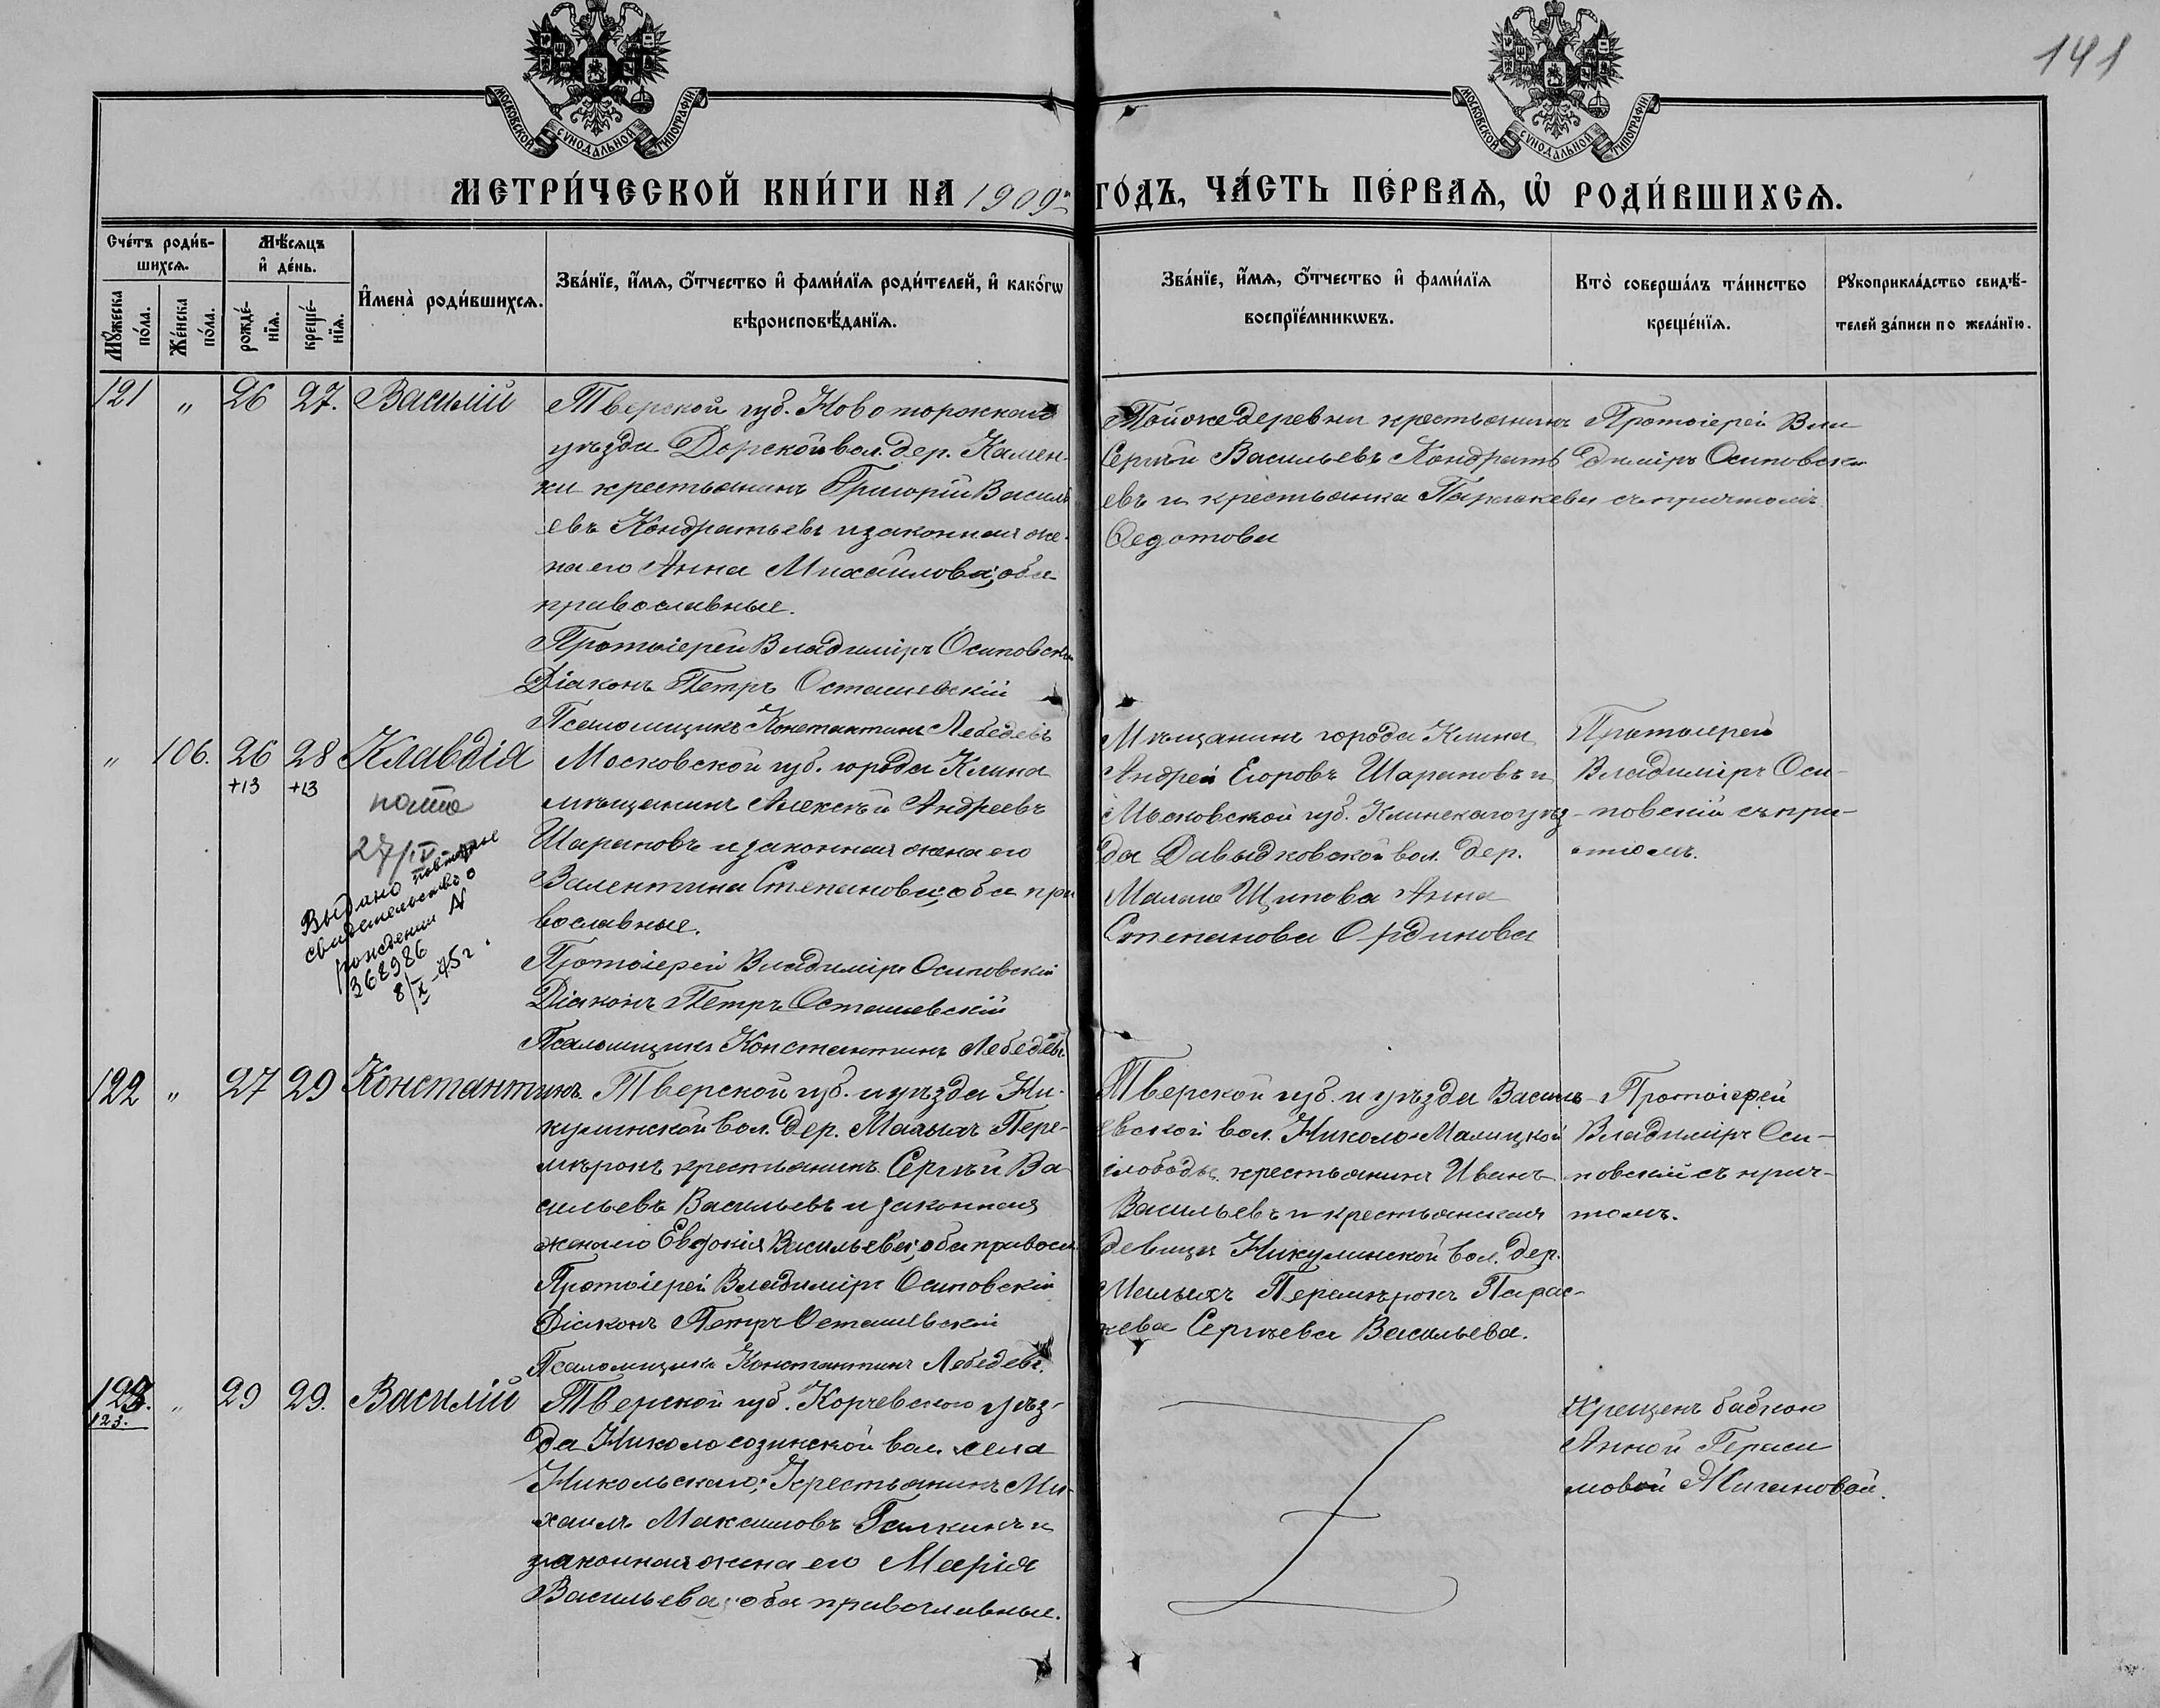 141
МОСКОВСКОЙ СѴНОДАЛЬНОЙ ТИПОГРАФІИ
МОСКОВСКОЙ СѴНОДАЛЬНОЙ ТИПОГРАФІИ
МЕТРИ́ЧЕСКОЙ КНИ́ГИ НА 1909й ГО́ДЪ, ЧА́СТЬ ПЕ́РВАѦ, Ѡ҆ РОДИ́ВШИХСѦ.
Сче́тъ роди́в-
шихсѧ.
Мꙋ́жеска
по́ла.
Же́нска
по́ла.
Мѣ́сѧцъ
и҆ де́нь.
рожде́-
нїѧ.
креще́-
нїѧ.
И҆мена̀ роди́вшихсѧ.
Зва́нїе, и҆́мѧ, ѻ҆́тчество и҆ фами́лїѧ роди́телей, и҆ како́гѡ
вѣроисповѣ́данїѧ.
Зва́нїе, и҆́мѧ, ѻ҆́тчество и҆ фами́лїѧ
воспрїе́мникѡвъ.
Кто̀ соверша́лъ та́инство
креще́нїѧ.
Рꙋкоприкла́дство свидѣ́-
телей за́писи по жела́нїю.
121 " 26 27. Василій
Тверской губ. Новоторжскаго
уѣзда Дорской вол. дер. Камен-
ки крестьянинъ Григорій Василь
евъ Кондратьевъ и законная же-
на его Анна Михайлова, оба
православные.
Протоіерей Владиміръ Осиповскій
Діаконъ Петръ Осташевскій
Псаломщикъ Константинъ Лебедевъ
Той же деревни крестьянинъ
Сергѣй Васильевъ Кондратъ
евъ и крестьянка Параскева
Федотова
Протоіерей Вла
диміръ Осиповскі
съ причтомъ.
" 106. 26 28 Клавдія
+13 +13
27/IV
Выдано повторное
свидетельство о
рождении N
368986
8/X-45г.
Московской губ. города Клина
мѣщанинъ Алексѣй Андреевъ
Шараповъ и законная жена его
Валентина Степанова, оба пра
вославные.
Протоіерей Владиміръ Осиповскій
Діаконъ Петръ Осташевскій
Псаломщикъ Константинъ Лебедевъ
Мѣщанинъ города Клина
Андрей Егоровъ Шараповъ и
Московской губ. Клинскаго уѣз-
да Давыдковской вол. дер.
Малаго Щапова Анна
Степанова Ординова
Протоіерей
Владиміръ Оси-
повскій съ при-
чтомъ.
122 " 27 29 Константинъ.
Тверской губ. и уѣзда Ни-
кулинской вол. дер. Малыхъ Пере-
мѣрокъ крестьянинъ Сергѣй Ва-
сильевъ Васильевъ и законная
жена его Евдокія Васильева, оба правосл.
Протоіерей Владиміръ Осиповскій
Діаконъ Петръ Осташевскій
Псаломщикъ Константинъ Лебедевъ.
Тверской губ. и уѣзда Василь-
евской вол. Николо-Малицкой
слободы крестьянинъ Иванъ
Васильевъ и крестьянская
девица Никулинской вол. дер.
Малыхъ Перемѣрокъ Парас-
кева Сергѣева Васильева.
Протоіерей
Владиміръ Оси-
повскій съ прич-
томъ.
123. " 29 29. Василій
123.
Тверской губ. Корчевского уѣз-
да Николосозинской вол. села
Никольскаго, Крестьянинъ Ми-
хаилъ Максимовъ Галкинъ и
законная жена его Марія
Васильева, оба православные.
Крещенъ бабкою
Анной Гераси
мовой Жигановой.